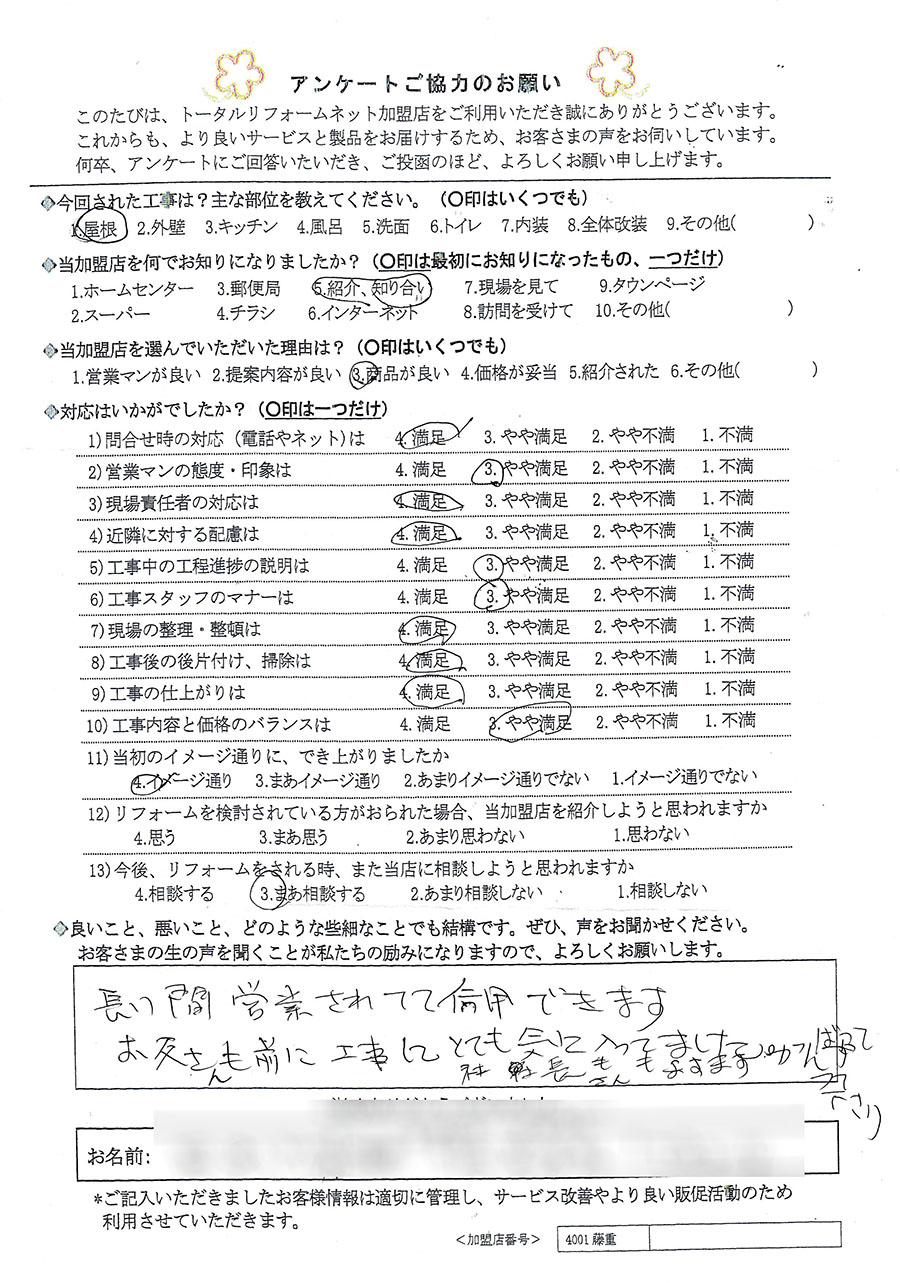 アンケートご協力のお願い
このたびは、トータルリフォームネット加盟店をご利用いただき誠にありがとうございます。
これからも、より良いサービスと製品をお届けするため、お客さまの声をお伺いしています。
何卒、アンケートにご回答いたいだき、ご投函のほど、よろしくお願い申し上げます。
◆今回された工事は？主な部位を教えてください。（〇印はいくつでも）
1.屋根 2.外壁 3.キッチン 4.風呂 5.洗面 6.トイレ 7.内装 8.全体改装 9.その他( )
◆当加盟店を何でお知りになりましたか？（〇印は最初にお知りになったもの、一つだけ）
1.ホームセンター 3.郵便局 5.紹介、知り合い 7.現場を見て 9.タウンページ
2.スーパー 4.チラシ 6.インターネット 8.訪問を受けて 10.その他( )
◆当加盟店を選んでいただいた理由は？（〇印はいくつでも）
1.営業マンが良い 2.提案内容が良い 3.商品が良い 4.価格が妥当 5.紹介された 6.その他( )
◆対応はいかがでしたか？（〇印は一つだけ）
1)問合せ時の対応（電話やネット)は 4.満足 3.やや満足 2.やや不満 1.不満
2)営業マンの態度・印象は 4.満足 3.やや満足 2.やや不満 1.不満
3)現場責任者の対応は 4.満足 3.やや満足 2.やや不満 1.不満
4)近隣に対する配慮は 4.満足 3.やや満足 2.やや不満 1.不満
5)工事中の工程進捗の説明は 4.満足 3.やや満足 2.やや不満 1.不満
6)工事スタッフのマナーは 4.満足 3.やや満足 2.やや不満 1.不満
7)現場の整理・整頓は 4.満足 3.やや満足 2.やや不満 1.不満
8)工事後の後片付け、掃除は 4.満足 3.やや満足 2.やや不満 1.不満
9)工事の仕上がりは 4.満足 3.やや満足 2.やや不満 1.不満
10)工事内容と価格のバランスは 4.満足 3.やや満足 2.やや不満 1.不満
11)当初のイメージ通りに、でき上がりましたか
4.イメージ通り 3.まあイメージ通り 2.あまりイメージ通りでない 1.イメージ通りでない
12)リフォームを検討されている方がおられた場合、当加盟店を紹介しようと思われますか
4.思う 3.まあ思う 2.あまり思わない 1.思わない
13)今後、リフォームをされる時、また当店に相談しようと思われますか
4.相談する 3.まあ相談する 2.あまり相談しない 1.相談しない
◆良いこと、悪いこと、どのような些細なことでも結構です。ぜひ、声をお聞かせください。
お客さまの生の声を聞くことが私たちの励みになりますので、よろしくお願いします。
長い間営業されてて信用できます
お友さんも前に工事してとても気に入ってました
社長さんも
お名前:
*ご記入いただきましたお客様情報は適切に管理し、サービス改善やより良い販促活動のため
利用させていただきます。
<加盟店番号> 4001 藤重